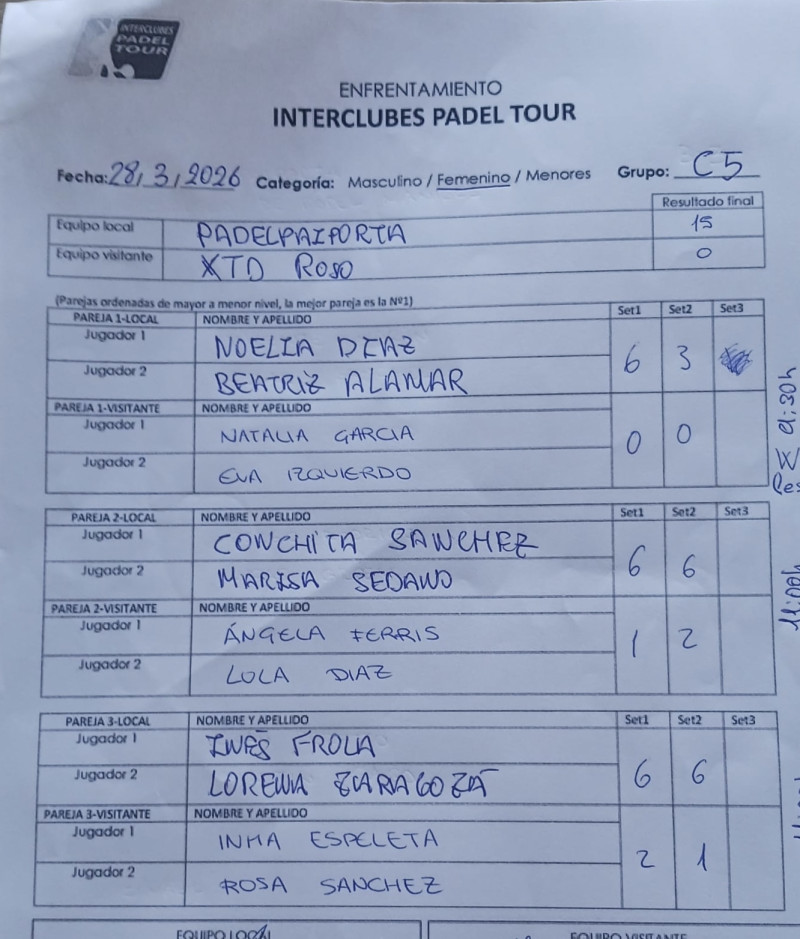 INTERCLUBES
PADEL
TOUR
ENFRENTAMIENTO
INTERCLUBES PADEL TOUR
Fecha: 28/3/2026 Categoría: Masculino / Femenino / Menores Grupo: C5
Resultado final
Equipo local PADELPAIPORTA 15
Equipo visitante XTD ROSO 0
(Parejas ordenadas de mayor a menor nivel, la mejor pareja es la Nº1)
PAREJA 1-LOCAL NOMBRE Y APELLIDO Set1 Set2 Set3
Jugador 1 NOELIA DIAZ
6 3
Jugador 2 BEATRIZ ALAMAR
PAREJA 1-VISITANTE NOMBRE Y APELLIDO
Jugador 1 NATALIA GARCIA
0 0
Jugador 2 EVA IZQUIERDO
PAREJA 2-LOCAL NOMBRE Y APELLIDO Set1 Set2 Set3
Jugador 1 CONCHITA SANCHEZ
6 6
Jugador 2 MARISA SEDANO
PAREJA 2-VISITANTE NOMBRE Y APELLIDO
Jugador 1 ÁNGELA FERRIS
1 2
Jugador 2 LOLA DIAZ
11:00h
PAREJA 3-LOCAL NOMBRE Y APELLIDO Set1 Set2 Set3
Jugador 1 INÉS FROLA
6 6
Jugador 2 LORENA ZARAGOZÁ
PAREJA 3-VISITANTE NOMBRE Y APELLIDO
Jugador 1 INMA ESPELETA
2 1
Jugador 2 ROSA SANCHEZ
EQUIPO LOCAL EQUIPO VISITANTE